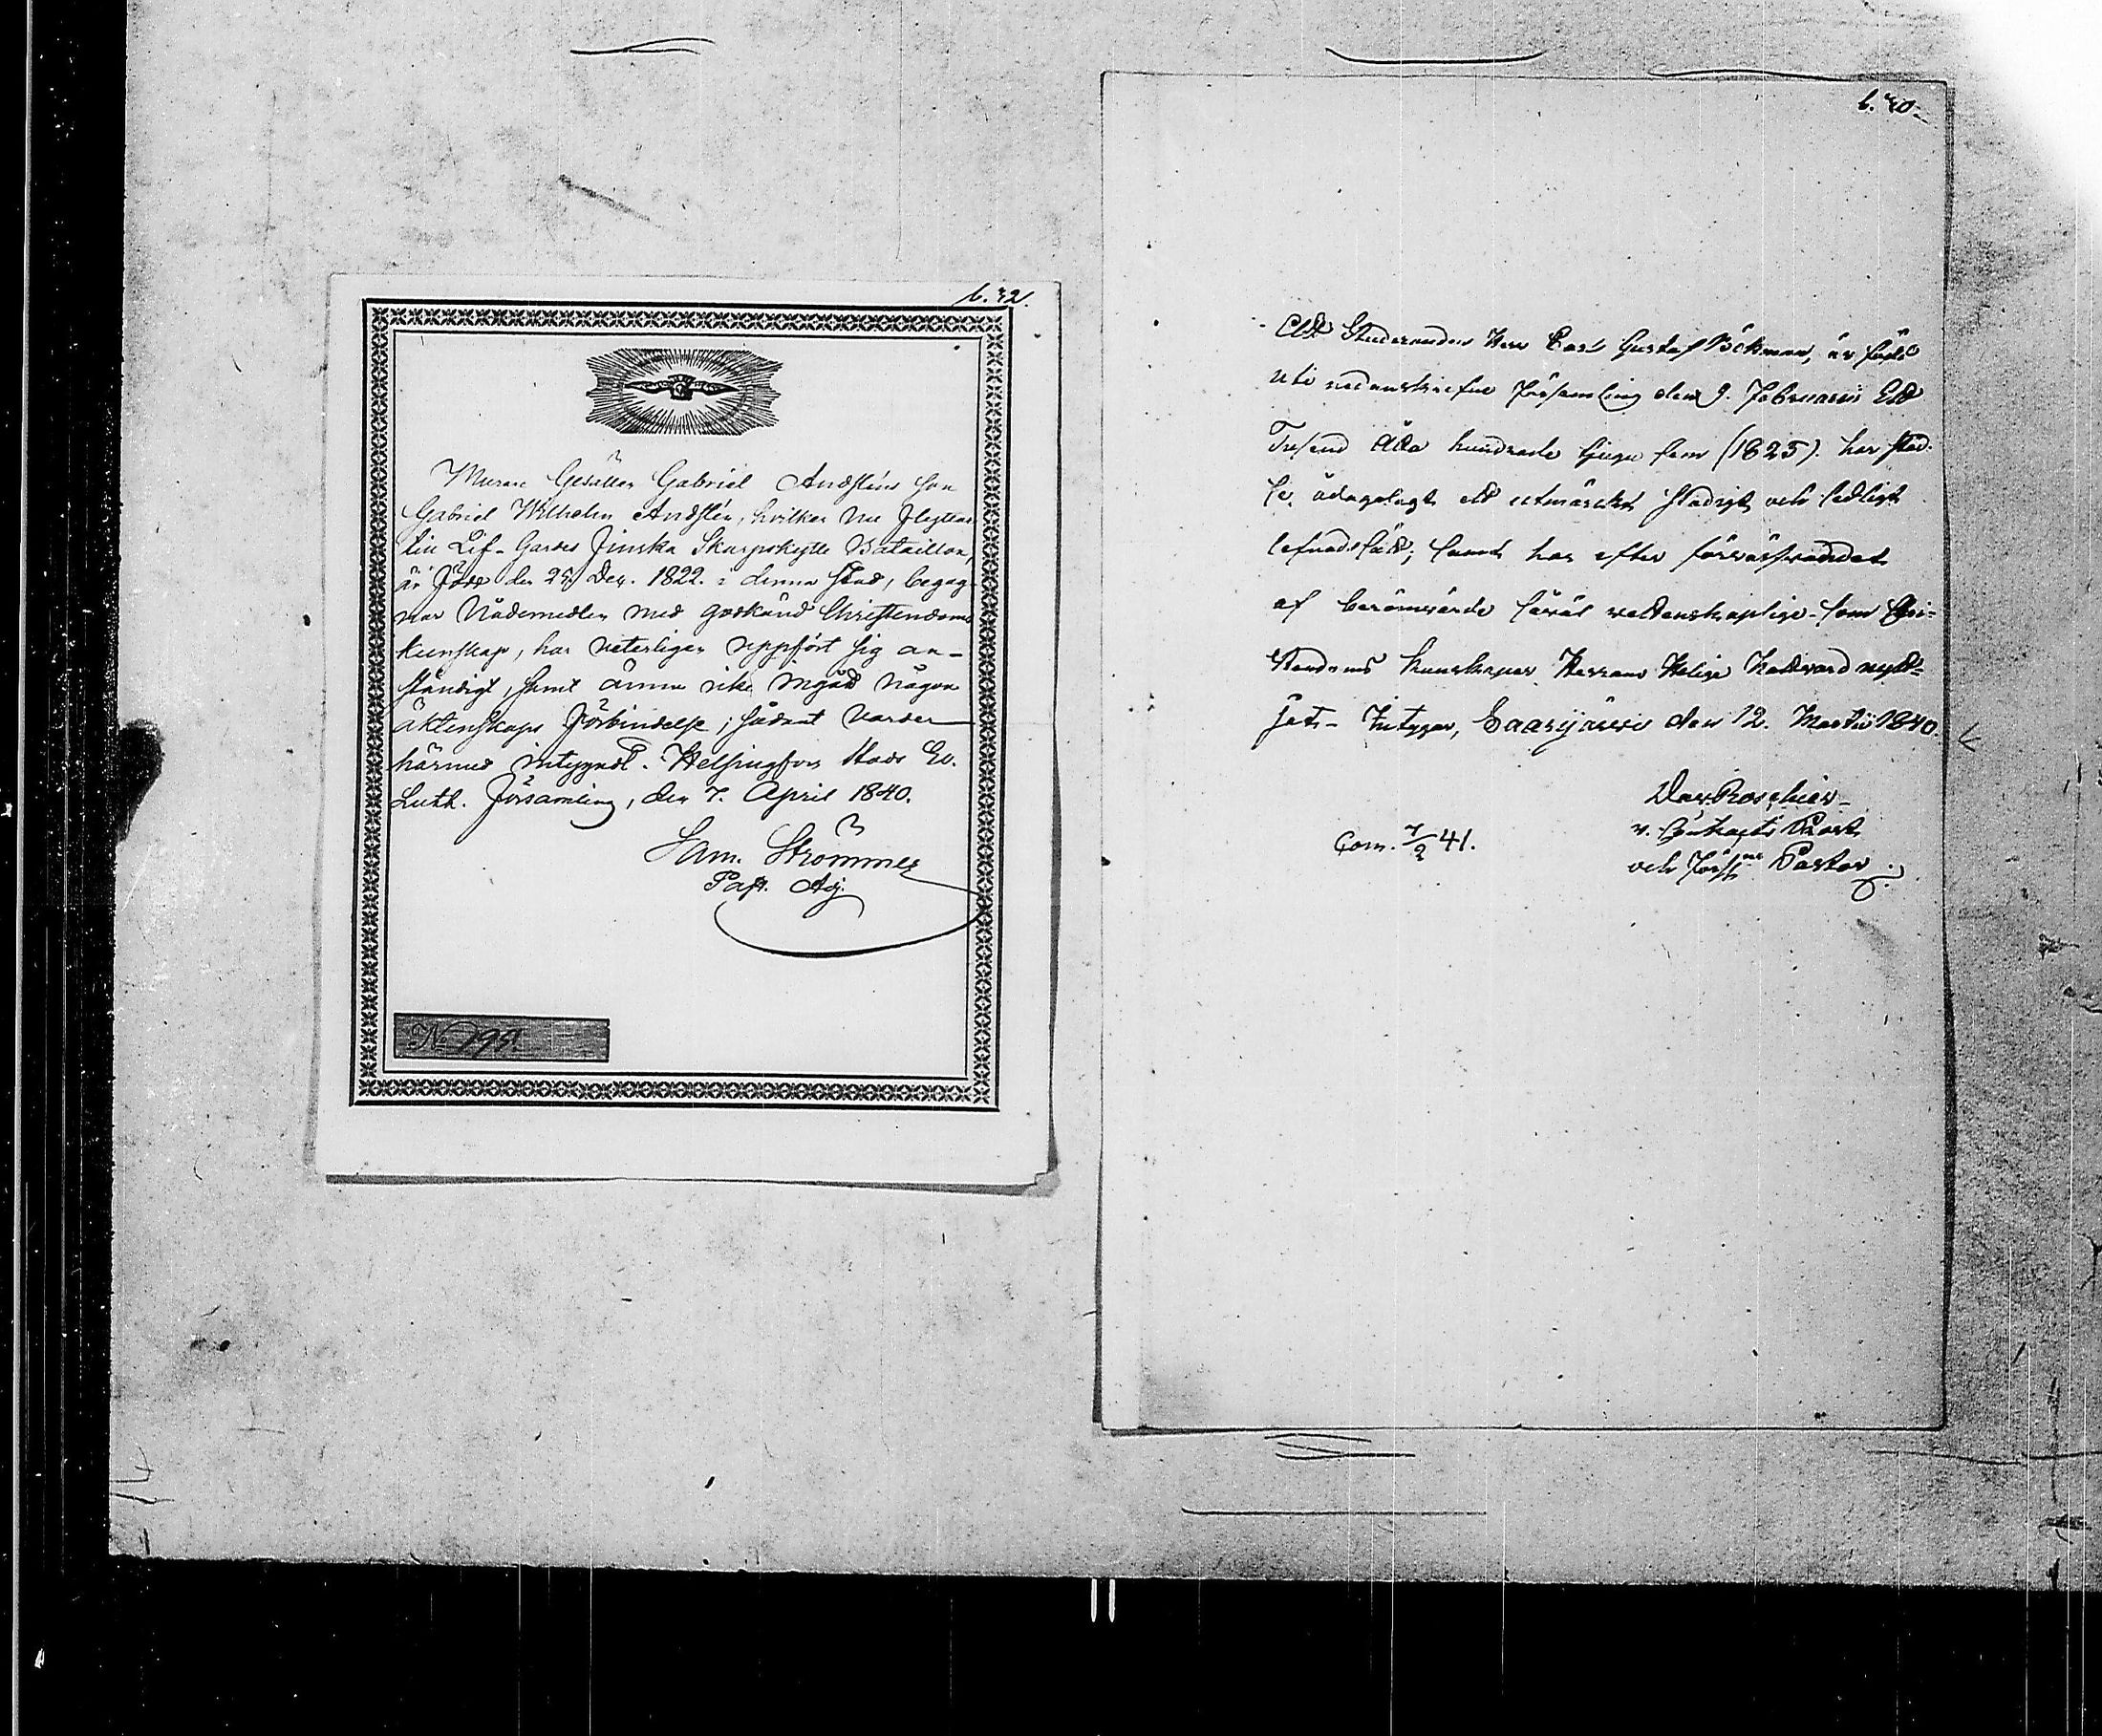 b. 42.
Murare Gesällen Gabriel Andsténs Son
Gabriel Wilhelm Andstén, hvilken nu flyttar
till Lif-Gardes Finska Skarpskytte Bataillon,
är född den 25 Dec. 1822. i denna Stad, begag-
nar Nådemedlen med godkänd Christendoms
kunskap, har veterligen uppfört sig an-
ständigt, samt ännu icke ingådt någon
äktenskaps förbindelse; sådant varder
härmed intygadt. Helsingfors Stads Ev.
Luth. Församling, den 7. April 1840.
Sam. Strömmer
Past. Adj.
No 195.
b. 40.
Att Studeranden Herr Carl Gustaf Böckman, är född
uti nedanskrefne Församling den 9. Februarii Ett
Tusend Åtta hundrade tjugu fem (1825). har städ-
se ådagalagt ett utmärckt stadigt och sedligt
lefnadssätt; samt har efter förvärfvandet
af berömvärde såväl vettenskaplige- som Chri-
stendoms kunskaper Herrans Helige Nattvard nytt-
jat- Intygar, Saarijärvi den 12. Martii 1840.
Dav. Roschier
v. Contracts Prost
och Förs:ns Pastor.
Com. 7/2 41.